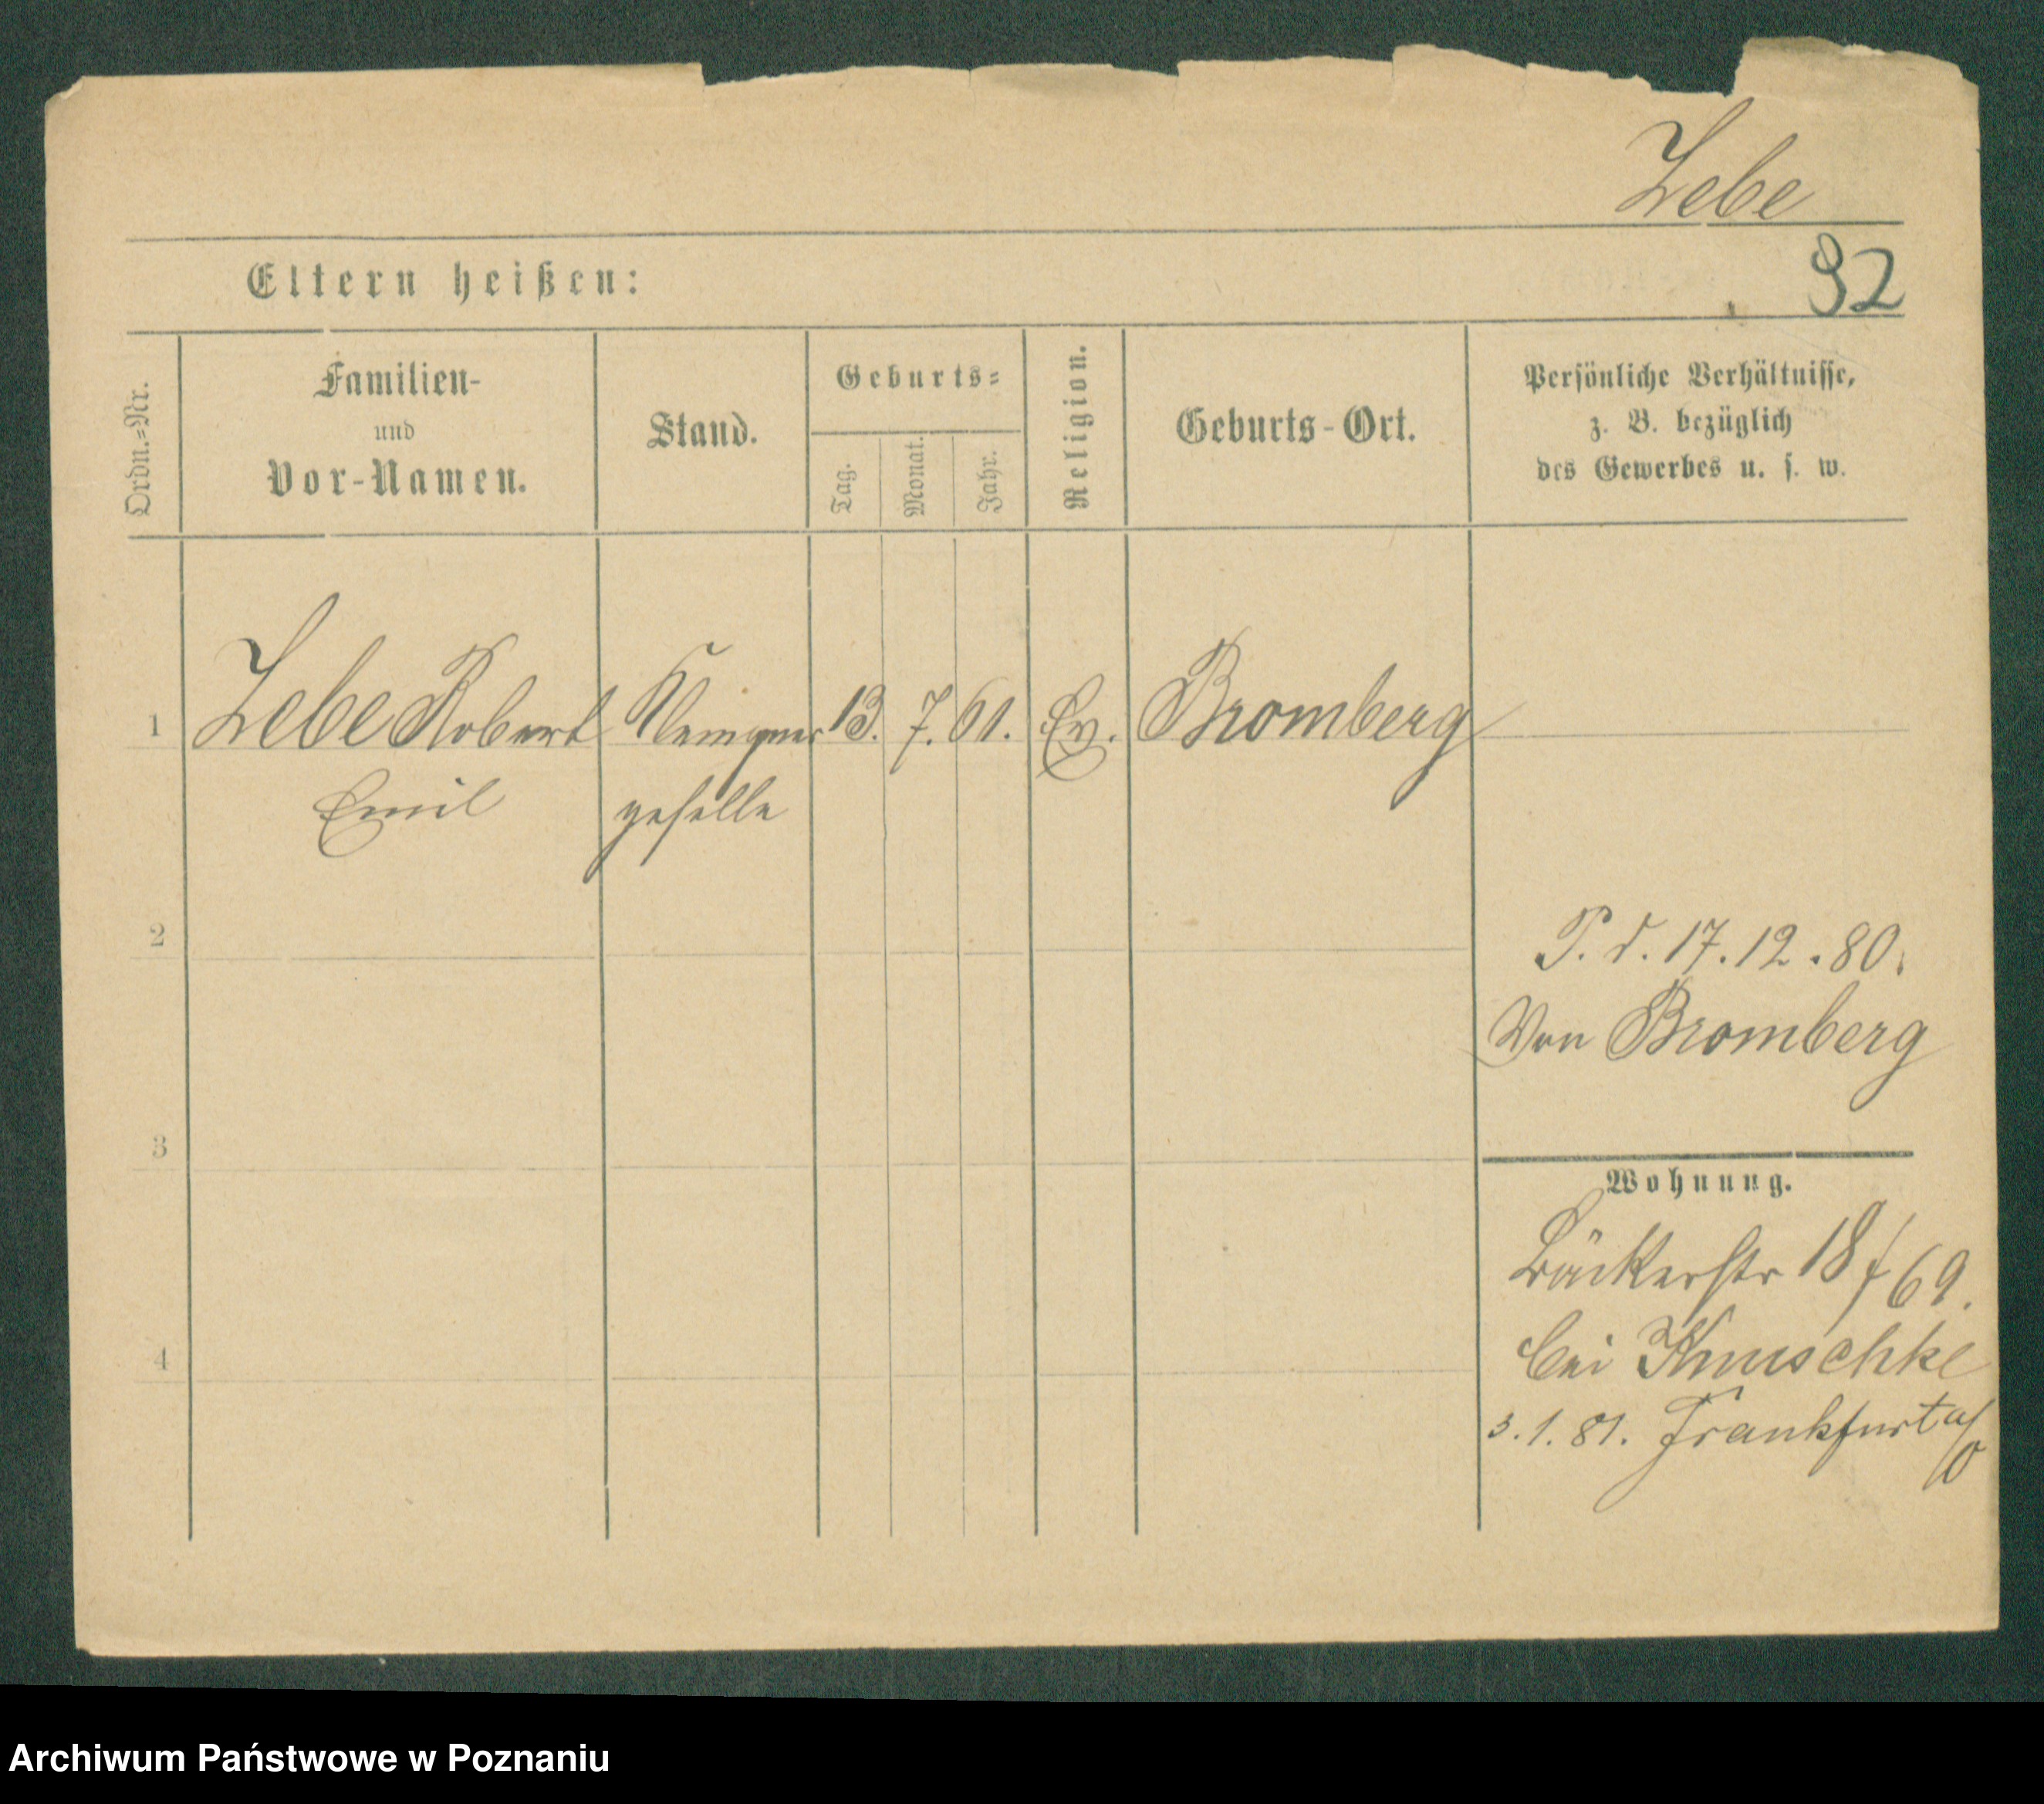 Zebe
92
Eltern heißen:
Ordn.=Nr.
Familien-
und
Vor-Namen.
Stand.
Geburts=
Tag.
Monat.
Jahr.
Religion.
Geburts-Ort.
Persönliche Verhältnisse,
z. B. bezüglich
des Gewerbes u. s. w.
1 Zebe Robert Klempner 13. 7. 61. Ev. Bromberg
Emil geselle
2
P. d. 17.12.80.
Von Bromberg
3
Wohnung.
Bäckerstr 18/69.
4
bei Knuschke
3.1.81. Frankfurt a/O
Archiwum Państwowe w Poznaniu